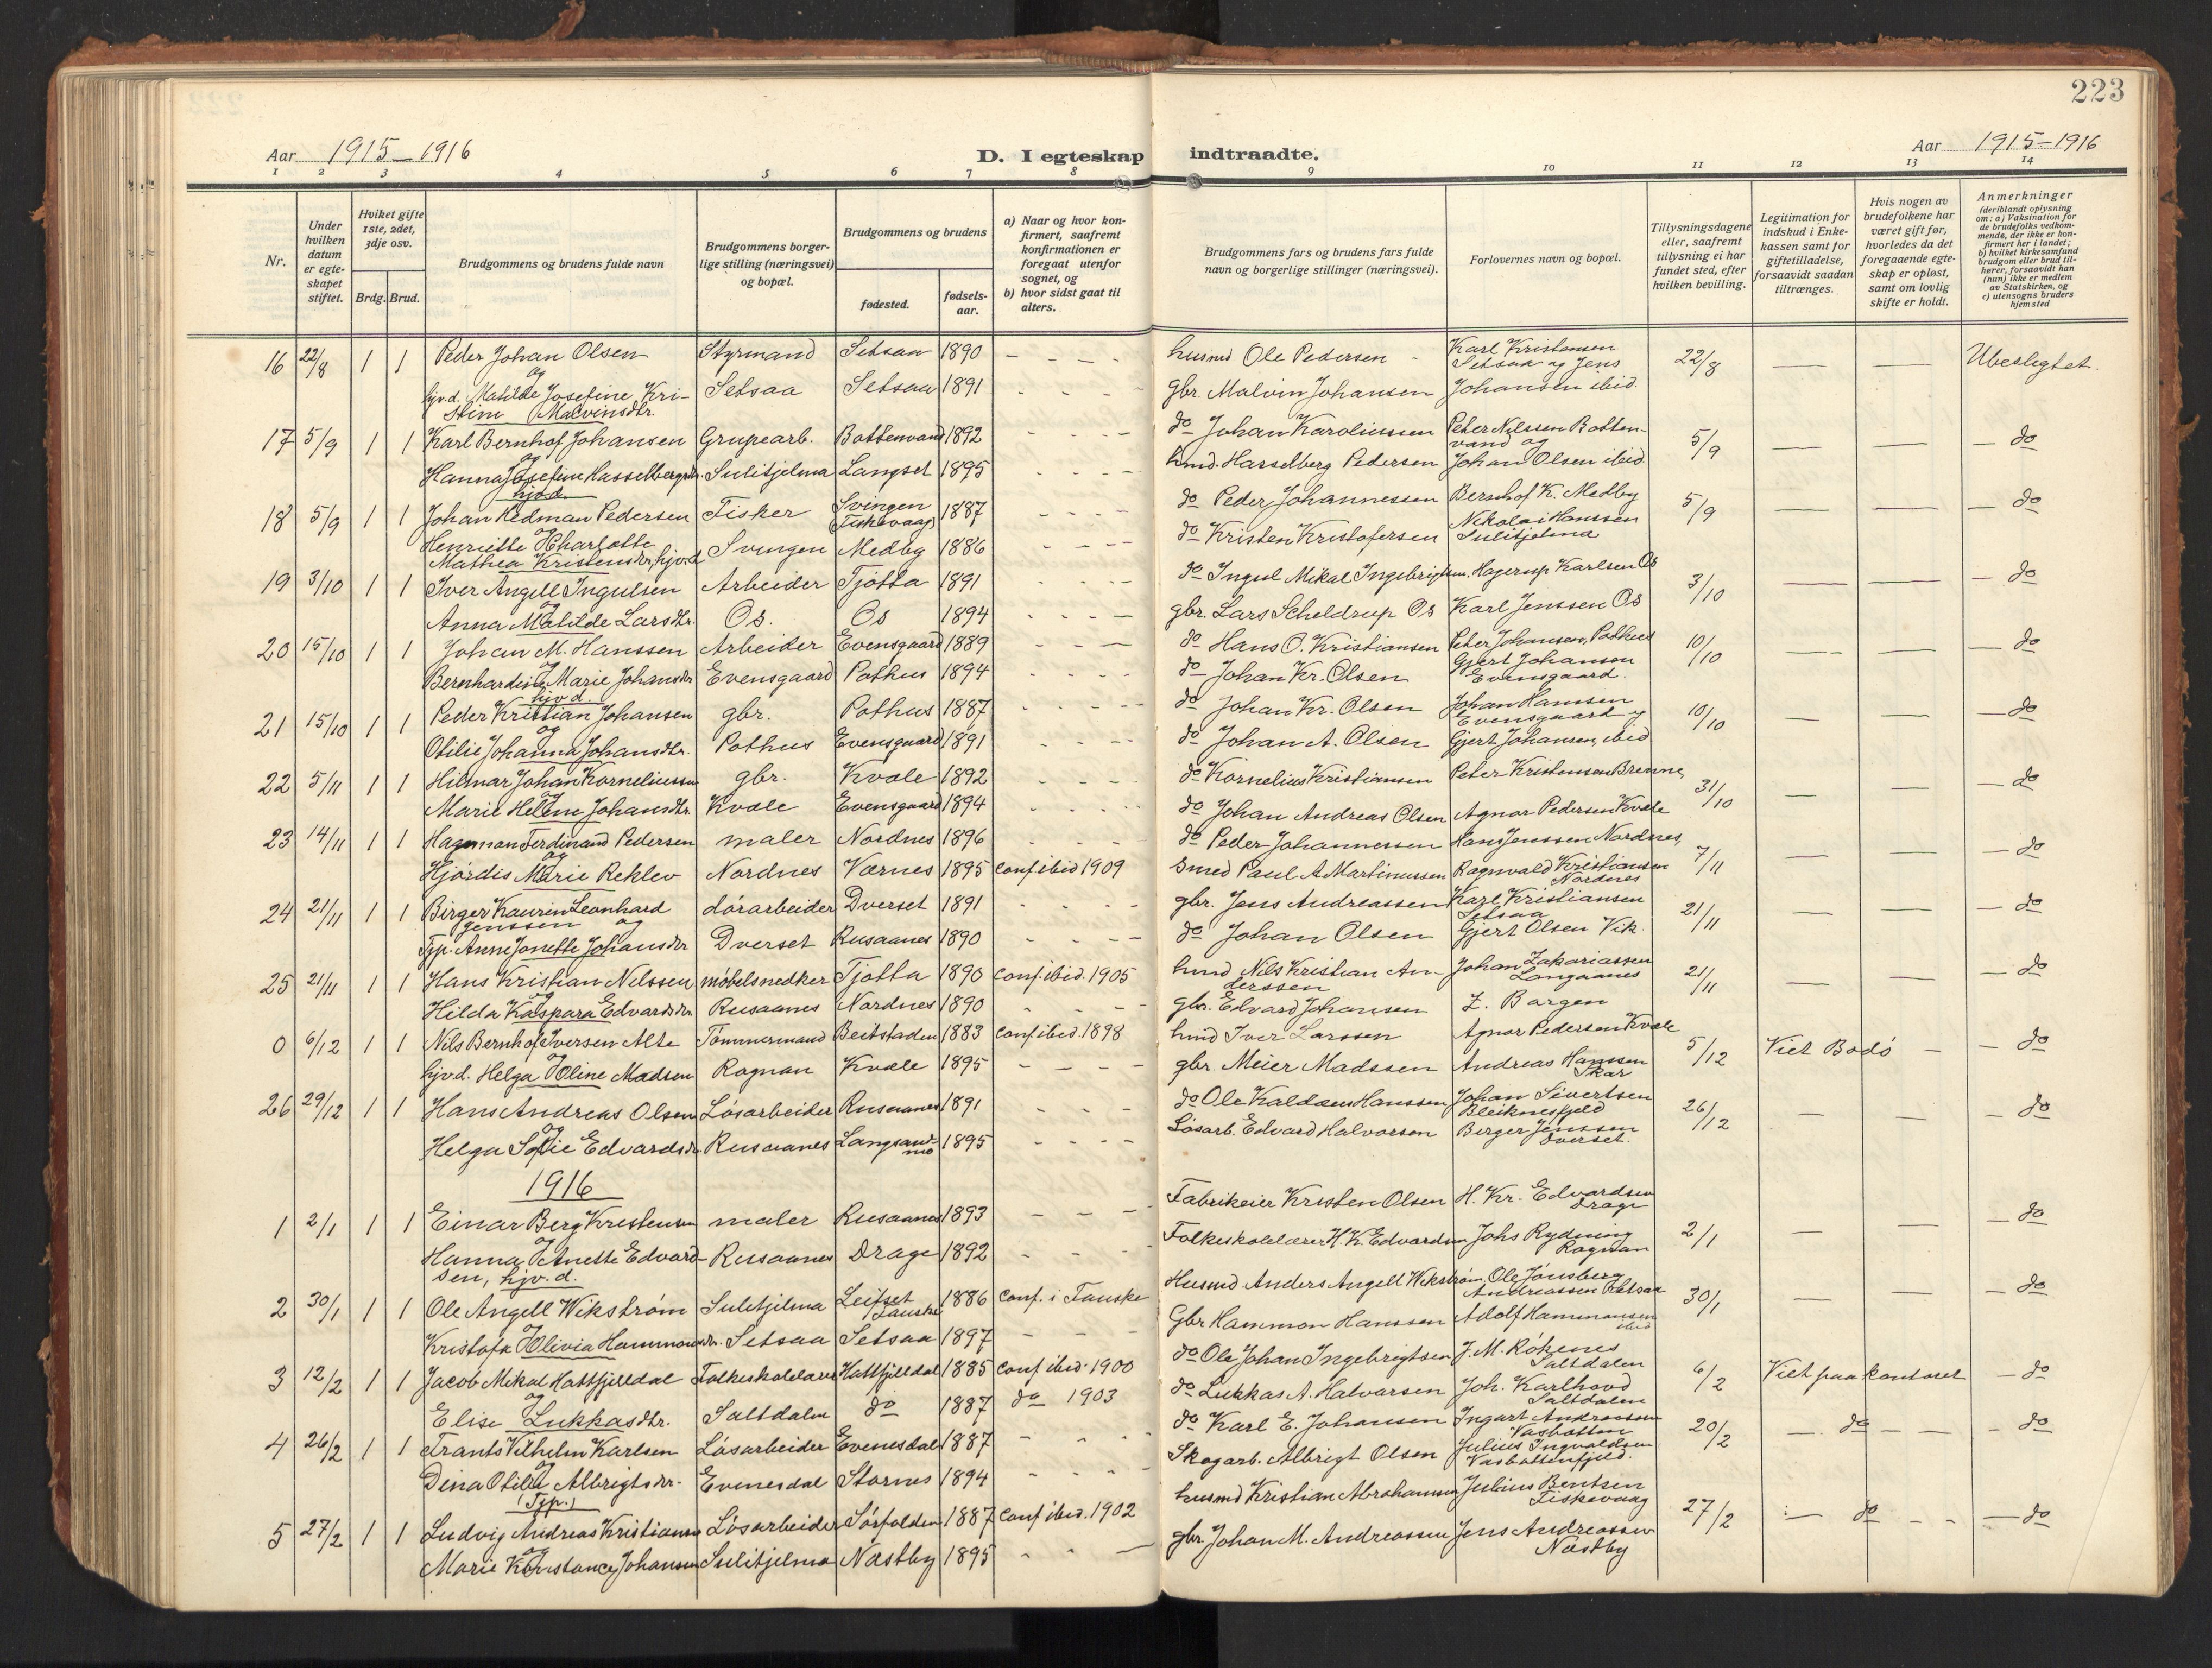 223
Aar 1915-1916
D. I egteskap indtraadte.
Aar 1915-1916
1 2 3 4 5 6 7 8 9 10 11 12 13 14
Nr.
Under hvilken datum er egteskapet stiftet.
Hviket gifte 1ste, 2det, 3dje osv.
Brdg. Brud.
Brudgommens og brudens fulde navn
Brudgommens borgerlige stilling (næringsvei) og bopæl.
Brudgommens og brudens
fødested.
fødselsaar.
a) Naar og hvor konfirmert, saafremt konfirmationen er foregaat utenfor sognet, og
b) hvor sidst gaat til alters.
Brudgommens fars og brudens fars fulde navn og borgerlige stillinger (næringsvei).
Forlovernes navn og bopæl.
Tillysningsdagene eller, saafremt tillysning ei har fundet sted, efter hvilken bevilling.
Legitimation for indskud i Enkekassen samt for giftetilladelse, forsaavidt saadan tiltrænges.
Hvis nogen av brudefolkene har været gift før, hvorledes da det foregaaende egteskap er opløst, samt om lovlig skifte er holdt.
Anmerkninger (deriblandt oplysning om: a) Vaksination for de brudefolks vedkommende, der ikke er konfirmert her i landet; b) hvilket kirkesamfund brudgom eller brud tilhører, forsaavidt han (hun) ikke er medlem av Statskirken, og c) utensogns bruders hjemsted
16 22/8 1 1 Peder Johan Olsen Styrmand Setsaa 1890 husmd Ole Pedersen Karl Kristensen Setsaa og Jens 22/8 — — Ubeslegtet.
og
hjv.d. Matilde Josefine Kristine Malvinsdtr. Setsaa Setsaa 1891 gbr. Malvin Johansen Johansen ibid.
17 5/9 1 1 Karl Bernhof Johansen Grupearb. Bottenvand 1892 do Johan Karoliussen Peter Nilssen Bottenvand og 5/9 — — do
og
Hanna Josefine Hasselbergsdtr. hjv.d. Sulitjelma Langset 1895 hmd. Hasselberg Pedersen Johan Olsen ibid.
18 5/9 1 1 Johan Hedman Pedersen Fisker Svingen (Fiskevaag) 1887 do Peder Johannessen Bernhof K. Medby 5/9 — — do
og
Henriette Charlotte Mathea Kristensdtr, hjv.d Svingen Medby 1886 do Kristen Kristofersen Nikolai Hanssen Sulitjelma
19 3/10 1 1 Iver Angell Ingulsen Arbeider Tjøtta 1891 do Ingul Mikal Ingebrigtsen. Hagerup Karlsen Os 3/10 — — do
og
Anna Matilde Larsdtr. Os. Os 1894 gbr. Lars Scheldrup Os Karl Jenssen Os
20 15/10 1 1 Johan M. Hanssen Arbeider Evensgaard 1889 do Hans O. Kristiansen Peter Johansen, Pothus 10/10 — — do
og
Bernhardine Marie Johansdtr hjv.d. Evensgaard Pothus 1894 do Johan Kr. Olsen Gjert Johansen Evensgaard.
21 15/10 1 1 Peder Kristian Johansen gbr. Pothus 1887 do Johan Kr. Olsen Johan Hanssen Evensgaard og 10/10 — — do
og
Otilie Johanna Johansdtr. Pothus Evensgaard 1891 do Johan A. Olsen Gjert Johansen, ibid
22 5/11 1 1 Hilmar Johan Korneliussen gbr. Kvale 1892 do Kornelius Kristiansen Peter Kristensen Brenne, 31/10 — — do
og
Marie Helene Johansdtr. Kvale Evensgaard 1894 do Johan Andreas Olsen Agnar Pedersen Kvale
23 14/11 1 1 Hagman Ferdinand Pedersen maler Nordnes 1896 do Peder Johannessen Hans Jenssen Nordnes, 7/11 — — do
og
Hjørdis Marie Reklev Nordnes Værnes 1895 conf ibid 1909 Smed Paul A Martinussen Ragnvald Kristiansen Nordnes
24 21/11 1 1 Birger Kaurin Leonhard Jenssen dørarbeider Dverset 1891 gbr. Jens Andreassen Karl Kristiansen Setsaa 21/11 — — do
og
Tjp. Anne Jonette Johansdtr Dverset Rusaanes 1890 do Johan Olsen Gjert Olsen Vik.
25 21/11 1 1 Hans Kristian Nilssen møbelsnedker Tjøtta 1890 conf. ibid. 1905 hmd Nils Kristian Anderssen Johan Zakariassen Langaanes 21/11 — — do
og
Hilda Kaspara Edvardsdtr Rusaanes Nordnes 1890 gbr. Edvard Johansen Z. Bargen
0 6/12 1 1 Nils Bernhof Iversen Alte Tømmermand Beitstaden 1883 conf ibid. 1898 hmd Iver Larssen Agnar Pedersen Kvale 5/12 Viet Bodø — — do
og
hjv.d. Helga Oline Madsen Rognan Kvale 1895 gbr. Meier Madssen Andreas Hanssen Skar
26 29/12 1 1 Hans Andreas Olsen Løsarbeider Rusaanes 1891 do Ole Kaldæus Hanssen Johan Sivertsen Bleiknesfjeld 26/12 — — do
og
Helga Sofie Edvardsdtr Rusaanes Langsandmo 1895 Løsarb. Edvard Halvorsen Berger Jenssen Dverset.
1916
1 2/1 1 1 Einar Berg Kristensen maler Rusaanes 1893 Fabrikeier Kristen Olsen H. Kr. Edvardsen Drage 2/1 — — do
og
Hanna Anette Edvardsen, hjv.d. Rusaanes Drage 1892 Folkeskolelærer H. K. Edvardsen Johs Rydning Rognan
2 30/1 1 1 Ole Angell Wikstrøm Sulitjelma Leifset Fauske 1886 conf. i Fauske Husmd Anders Angell Wikstrøm, Ole Jønsberg Andreassen 30/1 — — do
og
Kristofa Olivia Hammonsdtr. Setsaa Setsaa 1897 Gbr Hammon Hanssen Adolf Hammonsen ibid
3 12/2 1 1 Jacob Mikal Hattfjelldal Folkeskolelærer Hattfjelldal 1885 conf ibid. 1900 do Ole Johan Ingebrigtsen J. M. Røkenes Saltdalen 6/2 Viet paa kontoret — do
og
Elise Lukkasdtr. Saltdalen do 1887 do 1903 do Lukkas A. Halvarsen Joh. Karlhovd Saltdalen
4 26/2 1 1 Frants Vilhelm Karlsen Løsarbeider Evenesdal 1887 do Karl E. Johansen Ingart Andreassen Vasbotten 20/2 — do — — do
og
Dina Otilie Albrigtsdtr. (Tjp.) Evenesdal Stornes 1894 Skogarb. Albrigt Olsen Julius Ingvaldsen Vasbottenfjeld.
5 27/2 1 1 Ludvig Andreas Kristiansen Løsarbeider Sørfolden 1887 conf ibid. 1902 husmd Kristian Abrahamsen Julius Bentsen Fiskevaag 27/2 — do — do
og
Marie Konstance Johansen Sulitjelma Næstby 1895 gbr. Johan M. Andreassen Jens Andreassen Næstby